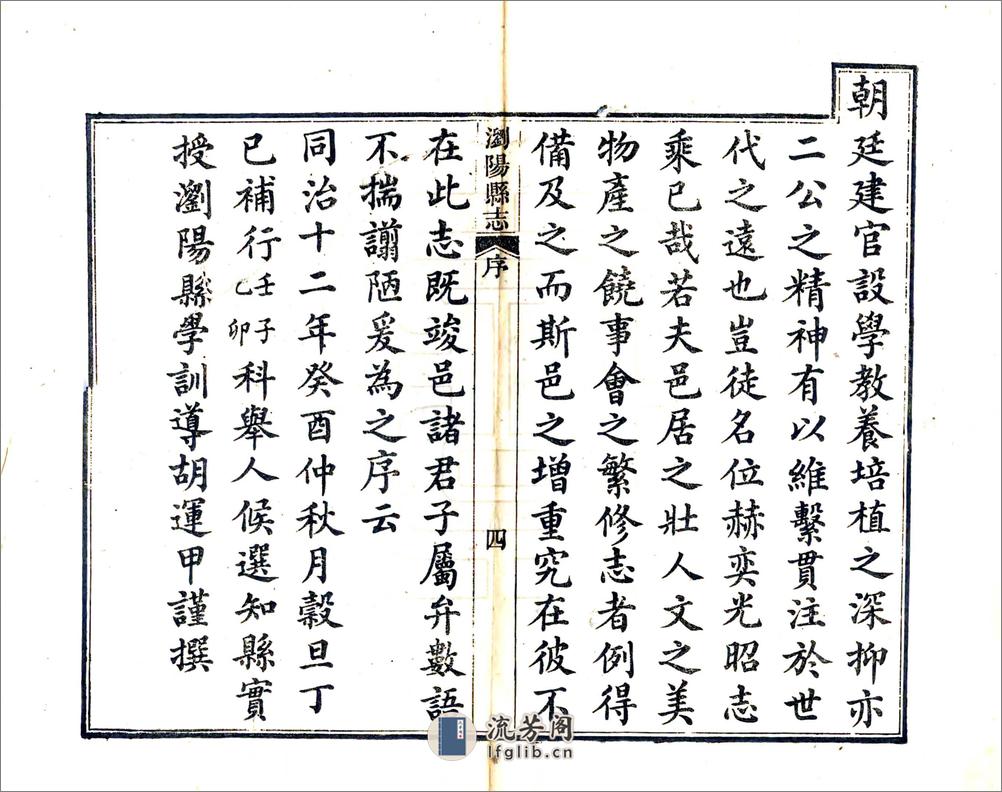 朝廷建官設學教養培植之深抑亦
二公之精神有以維繫貫注於世
代之遠也豈徒名位赫奕光昭志
乘已哉若夫邑居之壯人文之美
物產之饒事會之繁修志者例得
備及之而斯邑之增重究在彼不
瀏陽縣志 序 四
在此志既竣邑諸君子屬弁數語
不揣譾陋爰為之序云
同治十二年癸酉仲秋月穀旦丁
巳補行壬子乙卯科舉人候選知縣實
授瀏陽縣學訓導胡運甲謹撰
流芳阁
lfglib.cn